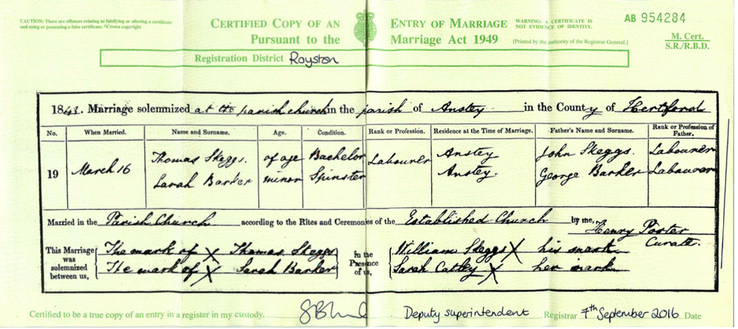 CAUTION: There are offences relating to falsifying or altering a certificate
and using or possessing a false certificate. *Crown copyright
CERTIFIED COPY OF AN ENTRY OF MARRIAGE
Pursuant to the Marriage Act 1949
WARNING: A CERTIFICATE IS
NOT EVIDENCE OF IDENTITY.
(Printed by the authority of the Registrar General.)
AB 954284
M. Cert.
S.R./R.B.D.
Registration District Royston
1843. Marriage solemnized at the parish church in the parish of Anstey in the County of Hertford
No. When Married. Name and Surname. Age. Condition. Rank or Profession. Residence at the Time of Marriage. Father's Name and Surname. Rank or Profession of Father.
19 March 16 Thomas Skeggs. of age Bachelor Labourer Anstey John Skeggs. Labourer
Sarah Barker minor Spinster Anstey. George Barker Labourer
Married in the Parish Church according to the Rites and Ceremonies of the Established Church by me, Henry Porter
Curate.
This Marriage was solemnized between us, The mark of X Thomas Skeggs In the Presence of us, William Skeggs X his mark
The mark of X Sarah Barker Sarah Catley X her mark
Certified to be a true copy of an entry in a register in my custody. Deputy superintendent Registrar 7th September 2016 Date